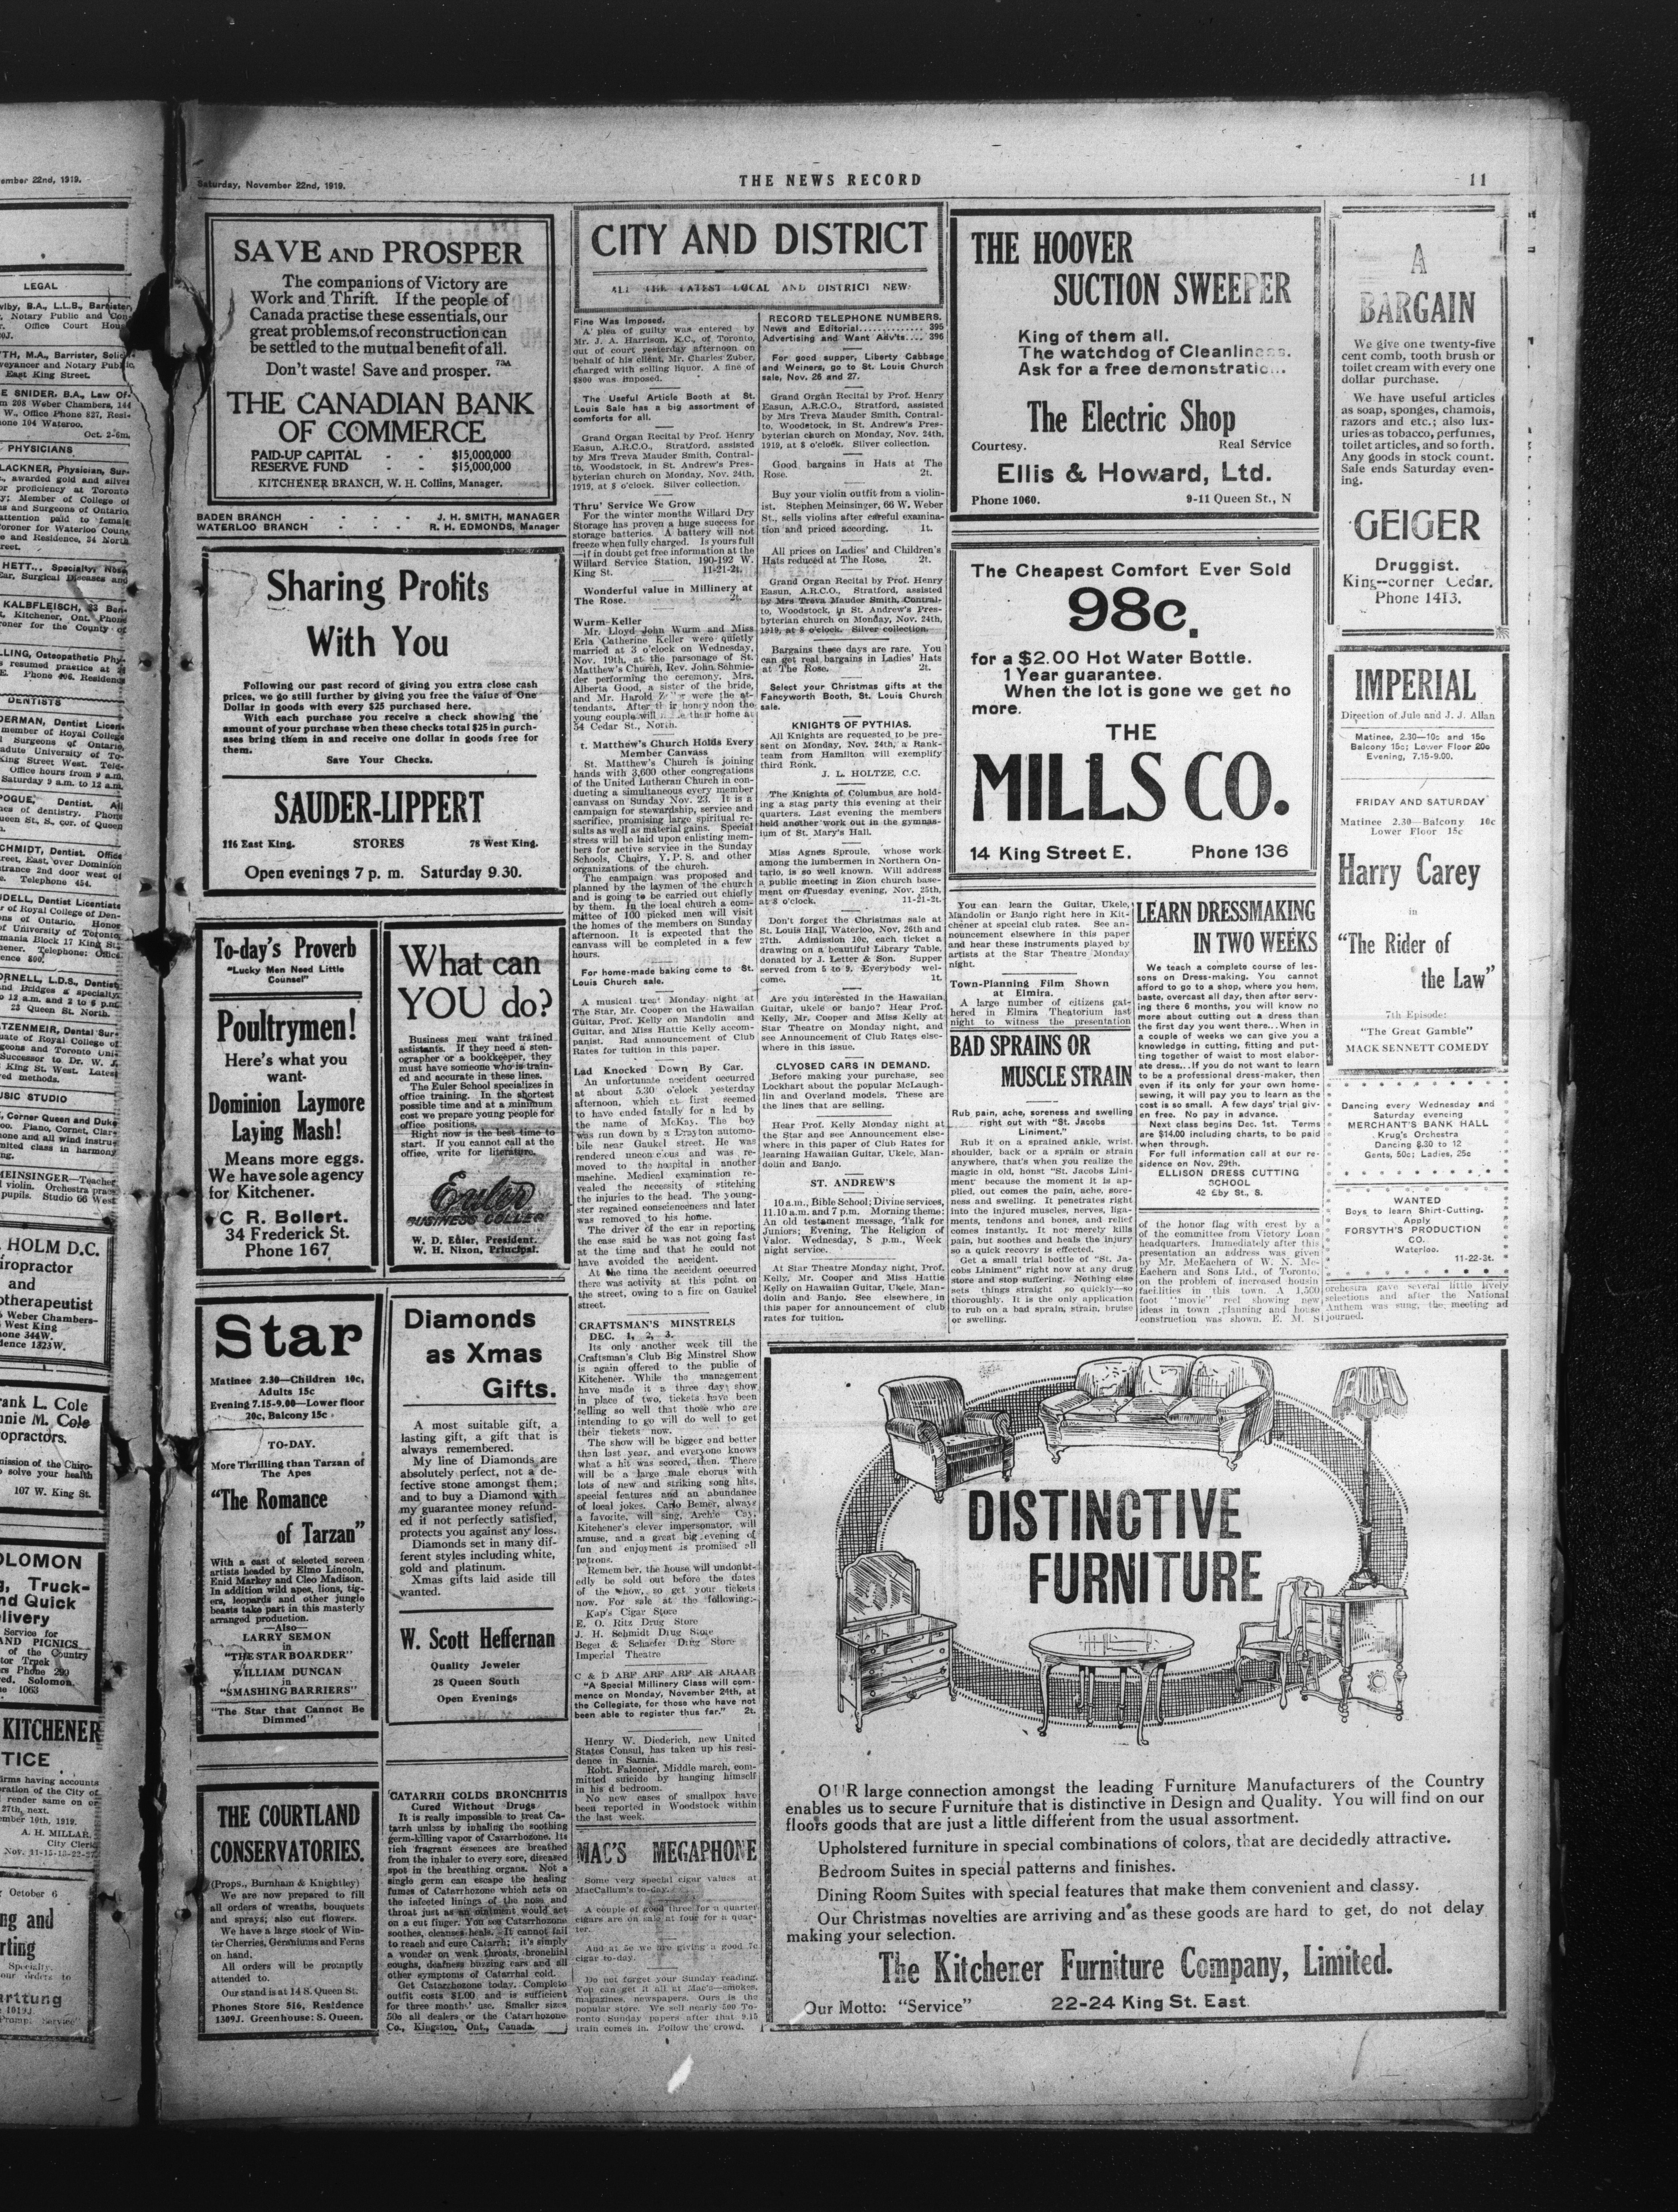 Saturday, November 22nd, 1919.
THE NEWS RECORD
11
SAVE AND PROSPER
The companions of Victory are
Work and Thrift. If the people of
Canada practise these essentials, our
great problems of reconstruction can
be settled to the mutual benefit of all.
Don't waste! Save and prosper.
THE CANADIAN BANK
OF COMMERCE
PAID-UP CAPITAL - - $15,000,000
RESERVE FUND - - $15,000,000
KITCHENER BRANCH, W. H. Collins, Manager.
BADEN BRANCH - - - - J. H. SMITH, MANAGER
WATERLOO BRANCH - - - - R. H. EDMONDS, Manager
Sharing Profits
With You
Following our past record of giving you extra close cash
prices, we go still further by giving you free the value of One
Dollar in goods with every $25 purchased here.
With each purchase you receive a check showing the
amount of your purchase when these checks total $25 in purch-
ases bring them in and receive one dollar in goods free for
them.
Save Your Checks.
SAUDER-LIPPERT
116 East King. STORES 78 West King.
Open evenings 7 p. m. Saturday 9.30.
To-day's Proverb
"Lucky Men Need Little
Counsel"
Poultrymen!
Here's what you
want-
Dominion Laymore
Laying Mash!
Means more eggs.
We have sole agency
for Kitchener.
C R. Bollert.
34 Frederick St.
Phone 167
What can
YOU do?
Business men want trained
assistants. If they need a sten-
ographer or a bookkeeper, they
must have someone who is train-
ed and accurate in these lines.
The Euler School specializes in
office training. In the shortest
possible time and at a minimum
cost we prepare young people for
office positions.
Right now is the best time to
start. If you cannot call at the
office, write for literature.
Euler
BUSINESS COLLEGE
W. D. Euler, President.
W. H. Nixon, Principal.
Star
Matinee 2.30—Children 10c,
Adults 15c
Evening 7.15-9.00—Lower floor
20c, Balcony 15c
TO-DAY.
More Thrilling than Tarzan of
The Apes
"The Romance
of Tarzan"
With a cast of selected screen
artists headed by Elmo Lincoln,
Enid Markey and Cleo Madison.
In addition wild apes, lions, tig-
ers, leopards and other jungle
beasts take part in this masterly
arranged production.
—Also—
LARRY SEMON
in
"THE STAR BOARDER"
WILLIAM DUNCAN
in
"SMASHING BARRIERS"
"The Star that Cannot Be
Dimmed"
Diamonds
as Xmas
Gifts.
A most suitable gift, a
lasting gift, a gift that is
always remembered.
My line of Diamonds are
absolutely perfect, not a de-
fective stone amongst them;
and to buy a Diamond with
my guarantee money refund-
ed if not perfectly satisfied,
protects you against any loss.
Diamonds set in many dif-
ferent styles including white,
gold and platinum.
Xmas gifts laid aside till
wanted.
W. Scott Heffernan
Quality Jeweler
28 Queen South
Open Evenings
THE COURTLAND
CONSERVATORIES.
(Props., Burnham & Knightley)
We are now prepared to fill
all orders of wreaths, bouquets
and sprays; also cut flowers.
We have a large stock of Win-
ter Cherries, Geraniums and Ferns
on hand.
All orders will be promptly
attended to.
Our stand is at 14 S. Queen St.
Phones Store 516, Residence
1309J. Greenhouse: S. Queen.
CATARRH COLDS BRONCHITIS
Cured Without Drugs
It is really impossible to treat Ca-
tarrh unless by inhaling the soothing
germ-killing vapor of Catarrhozone. Its
rich fragrant essences are breathed
from the inhaler to every sore, diseased
spot in the breathing organs. Not a
single germ can escape the healing
fumes of Catarrhozone which acts on
the infected linings of the nose and
throat just as an ointment would act
on a cut finger. You see Catarrhozone
soothes, cleanses heals. It cannot fail
to reach and cure Catarrh; it's simply
a wonder on weak throats, bronchial
coughs, deafness buzzing ears and all
other symptoms of Catarrhal cold.
Get Catarrhozone today. Complete
outfit costs $1.00 and is sufficient
for three months' use. Smaller sizes
50c all dealers or the Catarrhozone
Co., Kingston, Ont., Canada.
CITY AND DISTRICT
ALL THE LATEST LOCAL AND DISTRICT NEWS
Fine Was Imposed.
A plea of guilty was entered by
Mr. J. A. Harrison, K.C., of Toronto,
out of court yesterday afternoon on
behalf of his client, Mr. Charles Zuber,
charged with selling liquor. A fine of
$800 was imposed.
The Useful Article Booth at St.
Louis Sale has a big assortment of
comforts for all.
Grand Organ Recital by Prof. Henry
Easun, A.R.C.O., Stratford, assisted
by Mrs Treva Mauder Smith, Contral-
to, Woodstock, in St. Andrew's Pres-
byterian church on Monday, Nov. 24th,
1919, at 8 o'clock. Silver collection.
Thru' Service We Grow
For the winter months Willard Dry
Storage has proven a huge success for
storage batteries. A battery will not
freeze when fully charged. Is yours full
—if in doubt get free information at the
Willard Service Station, 190-192 W.
King St. 11-21-2t.
Wonderful value in Millinery at
The Rose. 2t.
Wurm-Keller
Mr. Lloyd John Wurm and Miss
Erla Catherine Keller were quietly
married at 3 o'clock on Wednesday,
Nov. 19th, at the parsonage of St.
Matthew's Church, Rev. John Schmie-
der performing the ceremony. Mrs.
Alberta Good, a sister of the bride,
and Mr. Harold were the at-
tendants. After their honeymoon the
young couple will their home at
54 Cedar St., North.
t. Matthew's Church Holds Every
Member Canvass
St. Matthew's Church is joining
hands with 3,600 other congregations
of the United Lutheran Church in con-
ducting a simultaneous every member
canvass on Sunday Nov. 23. It is a
campaign for stewardship, service and
sacrifice, promising large spiritual re-
sults as well as material gains. Special
stress will be laid upon enlisting mem-
bers for active service in the Sunday
Schools, Choirs, Y.P.S. and other
organizations of the church.
The campaign was proposed and
planned by the laymen of the church
and is going to be carried out chiefly
by them. In the local church a com-
mittee of 100 picked men will visit
the homes of the members on Sunday
afternoon. It is expected that the
canvass will be completed in a few
hours.
For home-made baking come to St.
Louis Church sale.
A musical treat Monday night at
The Star, Mr. Cooper on the Hawaiian
Guitar, Prof. Kelly on Mandolin and
Guitar, and Miss Hattie Kelly accom-
panist. Rad announcement of Club
Rates for tuition in this paper.
Lad Knocked Down By Car.
An unfortunate accident occurred
at about 5.30 o'clock yesterday
afternoon, which at first seemed
to have ended fatally for a lad by
the name of McKay. The boy
was run down by a Drayton automo-
bile near Gaukel street. He was
rendered unconcious and was re-
moved to the hospital in another
machine. Medical examination re-
vealed the necessity of stitching
the injuries to the head. The young-
ster regained conscienceness and later
was removed to his home.
The driver of the car in reporting
the case said he was not going fast
at the time and that he could not
have avoided the accident.
At the time the accident occurred
there was activity at this point on
the street, owing to a fire on Gaukel
street.
CRAFTSMAN'S MINSTRELS
DEC. 1, 2, 3.
Its only another week till the
Craftsman's Club Big Minstrel Show
is again offered to the public of
Kitchener. While the management
have made it a three day show
in place of two, tickets have been
selling so well that those who are
intending to go will do well to get
their tickets now.
The show will be bigger and better
than last year, and everyone knows
what a hit was scored, then. There
will be a large male chorus with
lots of new and striking song hits,
special features and an abundance
of local jokes. Carlo Bemer, always
a favorite, will sing, Archie Coy,
Kitchener's clever impersonator, will
amuse, and a great big evening of
fun and enjoyment is promised all
patrons.
Remember, the house will undoubt-
edly be sold out before the dates
of the show, so get your tickets
now. For sale at the following:-
Kap's Cigar Store
E. O. Ritz Drug Store
J. H. Schmidt Drug Store
Begg & Schaefer Drug Store
Imperial Theatre
C & D ARF ARF ARF AR ARAAR
"A Special Millinery Class will com-
mence on Monday, November 24th, at
the Collegiate, for those who have not
been able to register thus far." 2t.
Henry W. Diederich, new United
States Consul, has taken up his resi-
dence in Sarnia.
Robt. Falconer, Middle march, com-
mitted suicide by hanging himself
in his d bedroom.
No new cases of smallpox have
been reported in Woodstock within
the last week.
MAC'S MEGAPHONE
Some very special cigar values at
MacCallum's to-day.
A couple of good three for a quarter
cigars are on sale at four for a quar-
ter.
And at 5c we are giving a good 7c
cigar to-day.
Do not forget your Sunday reading.
You can get it all at Mac's—smokes,
magazines, newspapers. Ours is the
popular store. We sell nearly 500 To-
ronto Sunday papers after that 9.15
train comes in. Follow the crowd.
RECORD TELEPHONE NUMBERS.
News and Editorial............ 395
Advertising and Want Adv'ts.... 396
For good supper, Liberty Cabbage
and Weiners, go to St. Louis Church
sale, Nov. 26 and 27.
Grand Organ Recital by Prof. Henry
Easun, A.R.C.O., Stratford, assisted
by Mrs Treva Mauder Smith, Contral-
to, Woodstock, in St. Andrew's Pres-
byterian church on Monday, Nov. 24th,
1919, at 8 o'clock. Silver collection.
Good bargains in Hats at The
Rose. 2t.
Buy your violin outfit from a violin-
ist. Stephen Meinsinger, 66 W. Weber
St., sells violins after careful examina-
tion and priced according. 1t.
All prices on Ladies' and Children's
Hats reduced at The Rose. 2t.
Grand Organ Recital by Prof. Henry
Easun, A.R.C.O., Stratford, assisted
by Mrs Treva Mauder Smith, Contral-
to, Woodstock, in St. Andrew's Pres-
byterian church on Monday, Nov. 24th,
1919, at 8 o'clock. Silver collection.
Bargains these days are rare. You
can get real bargains in Ladies' Hats
at The Rose. 2t.
Select your Christmas gifts at the
Fancyworth Booth, St. Louis Church
sale.
KNIGHTS OF PYTHIAS.
All Knights are requested to be pre-
sent on Monday, Nov. 24th, a Rank-
team from Hamilton will exemplify
third Rank.
J. L. HOLTZE, C.C.
The Knights of Columbus are hold-
ing a stag party this evening at their
quarters. Last evening the members
held another work out in the gymnas-
ium of St. Mary's Hall.
Miss Agnes Sproule, whose work
among the lumbermen in Northern On-
tario, is so well known. Will address
a public meeting in Zion church base-
ment on Tuesday evening, Nov. 25th,
at 8 o'clock. 11-21-2t.
Don't forget the Christmas sale at
St. Louis Hall, Waterloo, Nov. 26th and
27th. Admission 10c, each ticket a
drawing on a beautiful Library Table,
donated by J. Letter & Son. Supper
served from 5 to 9. Everybody wel-
come. 1t.
Are you interested in the Hawaiian
Guitar, ukele or banjo? Hear Prof.
Kelly, Mr. Cooper and Miss Kelly at
Star Theatre on Monday night, and
see Announcement of Club Rates else-
where in this issue.
CLYOSED CARS IN DEMAND.
Before making your purchase, see
Lockhart about the popular McLaugh-
lin and Overland models. These are
the lines that are selling.
Hear Prof. Kelly Monday night at
the Star and see Announcement else-
where in this paper of Club Rates for
learning Hawaiian Guitar, Ukele, Man-
dolin and Banjo.
ST. ANDREW'S
10 a.m., Bible School; Divine services,
11.10 a.m. and 7 p.m. Morning theme;
An old testament message, Talk for
Juniors; Evening, The Religion of
Valor. Wednesday, 8 p.m., Week
night service.
At Star Theatre Monday night, Prof.
Kelly, Mr. Cooper and Miss Hattie
Kelly on Hawaiian Guitar, Ukele, Man-
dolin and Banjo. See elsewhere in
this paper for announcement of club
rates for tuition.
THE HOOVER
SUCTION SWEEPER
King of them all.
The watchdog of Cleanliness.
Ask for a free demonstratio...
The Electric Shop
Courtesy. Real Service
Ellis & Howard, Ltd.
Phone 1060. 9-11 Queen St., N
The Cheapest Comfort Ever Sold
98c.
for a $2.00 Hot Water Bottle.
1 Year guarantee.
When the lot is gone we get no
more.
THE
MILLS CO.
14 King Street E. Phone 136
You can learn the Guitar, Ukele,
Mandolin or Banjo right here in Kit-
chener at special club rates. See an-
nouncement elsewhere in this paper
and hear these instruments played by
artists at the Star Theatre Monday
night.
Town-Planning Film Shown
at Elmira.
A large number of citizens gat-
hered in Elmira Theatorium last
night to witness the presentation
BAD SPRAINS OR
MUSCLE STRAIN
Rub pain, ache, soreness and swelling
right out with "St. Jacobs
Liniment."
Rub it on a sprained ankle, wrist,
shoulder, back or a sprain or strain
anywhere, that's when you realize the
magic in old, honst "St. Jacobs Lini-
ment" because the moment it is ap-
plied, out comes the pain, ache, sore-
ness and swelling. It penetrates right
into the injured muscles, nerves, liga-
ments, tendons and bones, and relief
comes instantly. It not merely kills
pain, but soothes and heals the injury
so a quick recovry is effected.
Get a small trial bottle of "St. Ja-
cobs Liniment" right now at any drug
store and stop suffering. Nothing else
sets things straight so quickly—so
thoroughly. It is the only application
to rub on a bad sprain, strain, bruise
or swelling.
LEARN DRESSMAKING
IN TWO WEEKS
We teach a complete course of les-
sons on Dress-making. You cannot
afford to go a shop, where you hem,
baste, overcast all day, then after serv-
ing there 6 months, you will know no
more about cutting out a dress than
the first day you went there...When in
a couple of weeks we can give you a
knowledge in cutting, fitting and put-
ting together of waist to most elabor-
ate dress...If you do not want to learn
to be a professional dress-maker, then
even if its only for your own home-
sewing, it will pay you to learn as the
cost is so small. A few days' trial giv-
en free. No pay in advance.
Next class begins Dec. 1st. Terms
are $14.00 including charts, to be paid
when through.
For full information call at our re-
sidence on Nov. 29th.
ELLISON DRESS CUTTING
SCHOOL
42 Eby St., S.
of the honor flag with crest by a
of the committee from Victory Loan
headquarters. Immediately after this
presentation an address was given
by Mr. McEachern of W. N. Mc-
Eachern and Sons Ltd., of Toronto,
on the problem of increased housin
facilities in this town. A 1,500
foot "movie" reel showing new
ideas in town planning and house
construction was shown. E. M. S
A
BARGAIN
We give one twenty-five
cent comb, tooth brush or
toilet cream with every one
dollar purchase.
We have useful articles
as soap, sponges, chamois,
razors and etc.; also lux-
uries as tobacco, perfumes,
toilet articles, and so forth.
Any goods in stock count.
Sale ends Saturday even-
ing.
GEIGER
Druggist.
King--corner Cedar.
Phone 1413.
IMPERIAL
Direction of Jule and J. J. Allan
Matinee, 2.30—10c and 15c
Balcony 15c; Lower Floor 20c
Evening, 7.15-9.00.
FRIDAY AND SATURDAY
Matinee 2.30—Balcony 10c
Lower Floor 15c
Harry Carey
in
"The Rider of
the Law"
7th Episode:
"The Great Gamble"
MACK SENNETT COMEDY
Dancing every Wednesday and
Saturday evening
MERCHANT'S BANK HALL
Krug's Orchestra
Dancing 8.30 to 12
Gents, 50c; Ladies, 25c
WANTED
Boys to learn Shirt-Cutting.
Apply
FORSYTH'S PRODUCTION
CO.
Waterloo.
11-22-3t.
orchestra gave several little lively
selections and after the National
Anthem was sung, the meeting ad
journed.
DISTINCTIVE
FURNITURE
OUR large connection amongst the leading Furniture Manufacturers of the Country
enables us to secure Furniture that is distinctive in Design and Quality. You will find on our
floors goods that are just a little different from the usual assortment.
Upholstered furniture in special combinations of colors, that are decidedly attractive.
Bedroom Suites in special patterns and finishes.
Dining Room Suites with special features that make them convenient and classy.
Our Christmas novelties are arriving and as these goods are hard to get, do not delay
making your selection.
The Kitchener Furniture Company, Limited.
Our Motto: "Service" 22-24 King St. East